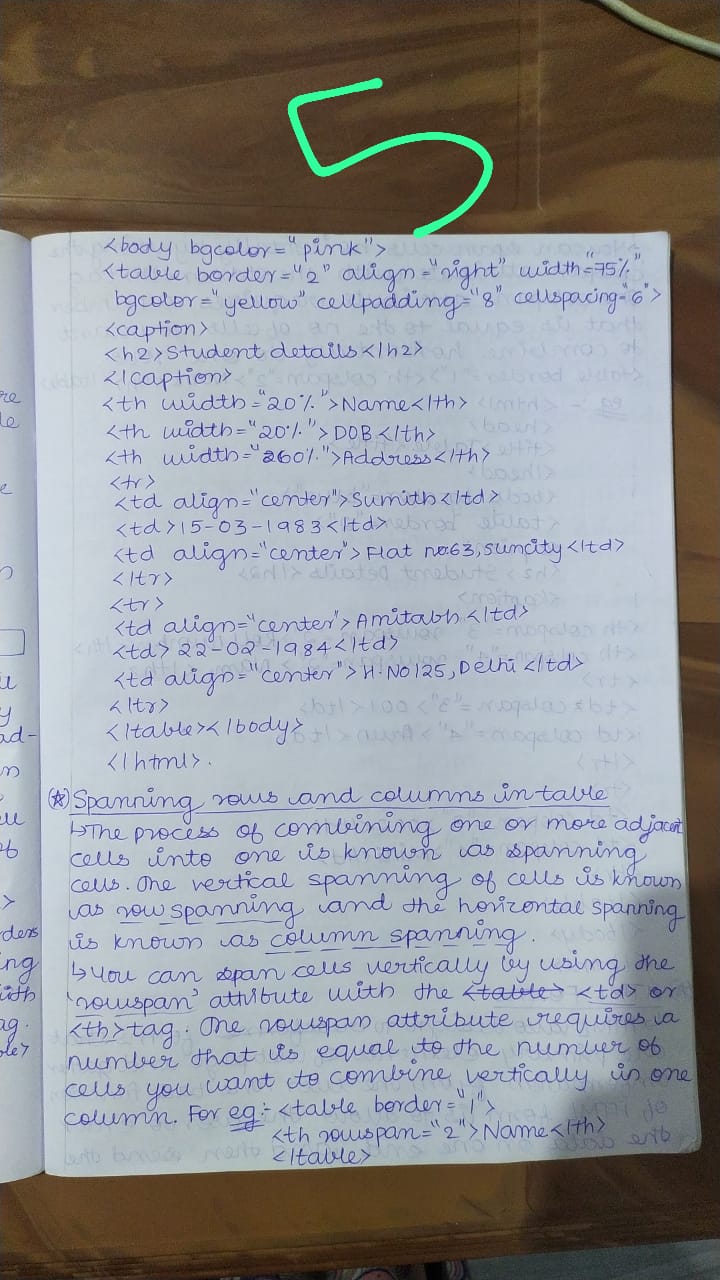 5
<body bgcolor="pink">
<table border="2" align="right" width="75%"
bgcolor="yellow" cellpadding="8" cellspacing="6">
<caption>
<h2>Student details</h2>
</caption>
<th width="20%">Name</th>
<th width="20%">DOB</th>
<th width="260%">Address</th>
<tr>
<td align="center">Sumith</td>
<td>15-03-1983</td>
<td align="center">Flat no63, suncity</td>
</tr>
<tr>
<td align="center">Amitabh</td>
<td>22-02-1984</td>
<td align="center">H.NO125, Delhi</td>
</tr>
</table></body>
</html>.
Spanning rows and columns in table
↳The process of combining one or more adjacent
cells into one is known as spanning
cells. The vertical spanning of cells is known
as row spanning and the horizontal spanning
is known as column spanning.
↳You can span cells vertically by using the
'rowspan' attribute with the <table> <td> or
<th> tag. The rowspan attribute requires a
number that is equal to the number of
cells you want to combine vertically in one
column. For eg:- <table border="1">
<th rowspan="2">Name</th>
</table>